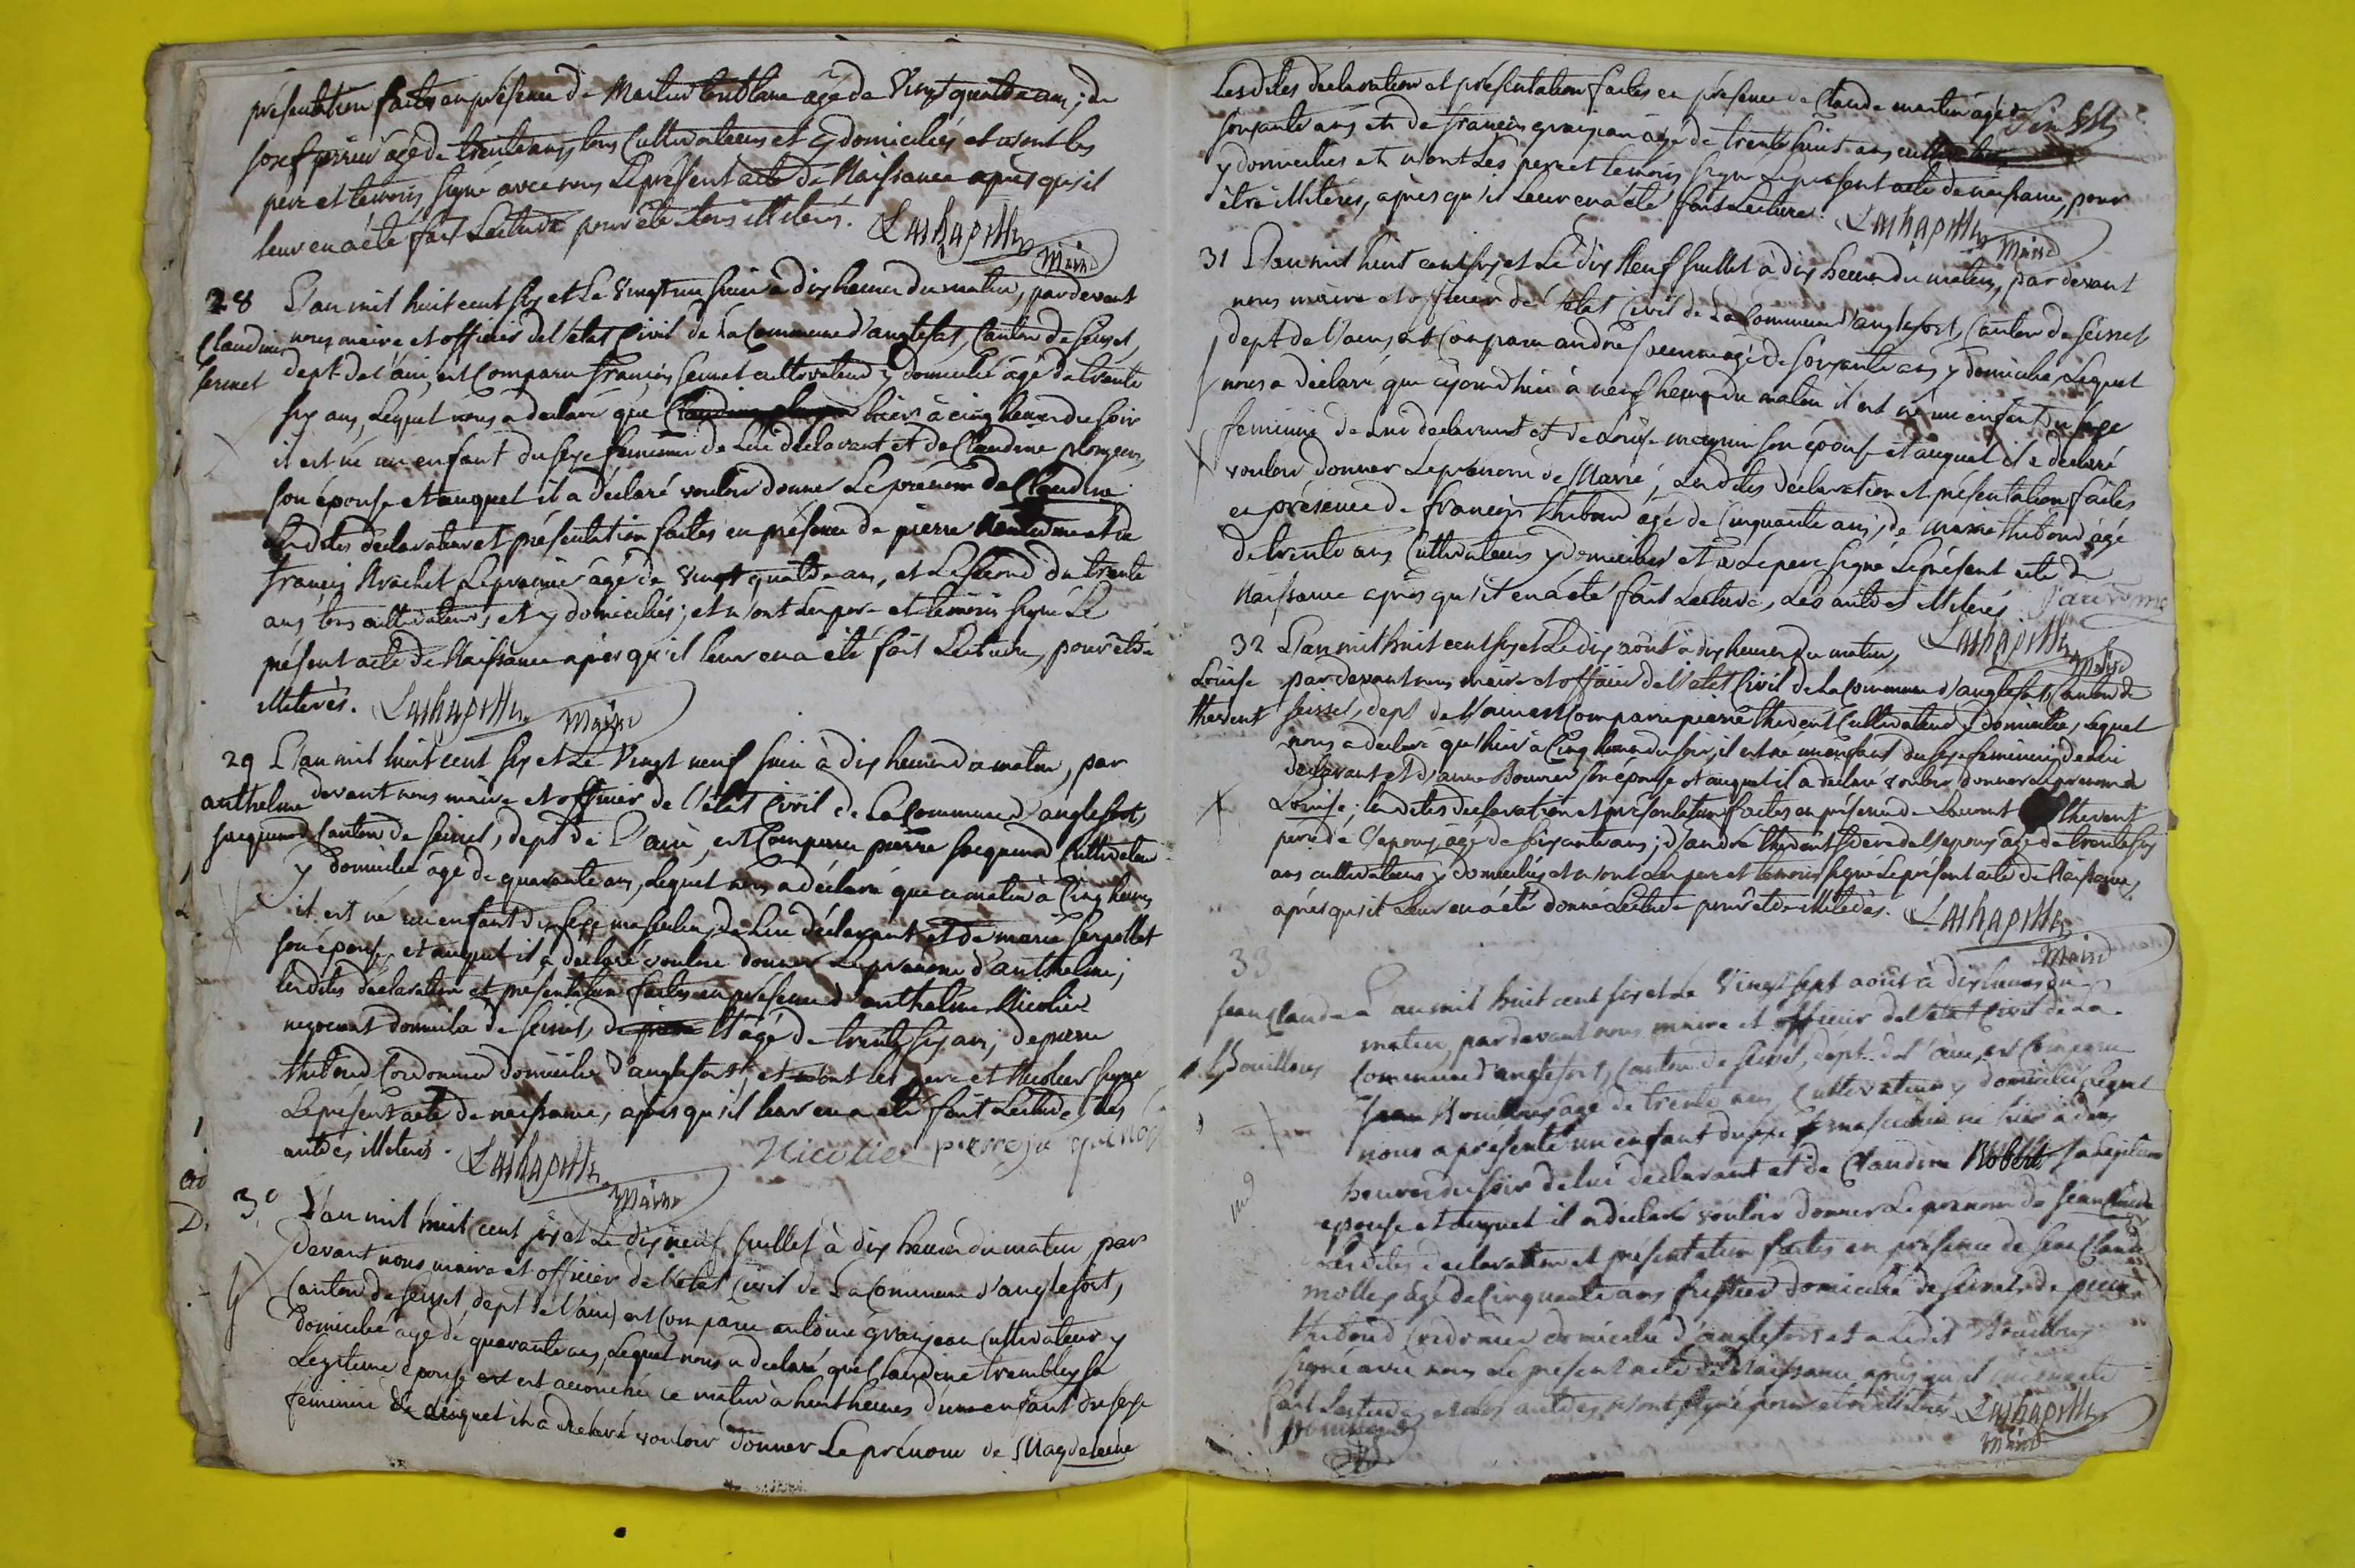 présentation faites en présence de Martin âgé de Vingt quatre ans; de
josef perrier âgé de trente ans, tous Cultivateurs et y domiciliés et n'ont les
pere et temoins signé avec nous Le présent acte de Naissance après qu'il
leur en a été fait Lecture pour être tous illiterés. Lachapelle
Maire
28 L'an mil huit cent six et Le Vingt un juin à dix heures du matin, par devant
Claudine nous maire et officier de l'état Civil de La Commune d'anglefort, Canton de Seissel,
dept. de l'ain, est Comparu françois cultivateur y domicilié âgé de trente
six ans, Lequel nous a déclaré que hier à cinq heures du soir
il est né un enfant du sexe feminin de Lui déclarant et de Claudine
son épouse et auquel il a déclaré vouloir donner Le prénom de Claudine
Lesdites déclaration et présentation faites en présence de pierre et de
françois Brachet Le premier âgé de Vingt quatre ans, et Le second de trente
ans tous cultivateurs, et y domiciliés; et n'ont Les pere et temoins signé Le
présent acte de Naissance après qu'il leur en a été fait Lecture, pour être
illiterés. Lachapelle Maire
29 L'an mil huit cent six et Le Vingt neuf juin à dix heures du matin, par
anthelme devant nous maire et officier de l'état Civil de La Commune d'anglefort,
jacquenod Canton de Seissel, dept. de L'ain, est Comparu pierre jacquenod Cultivateur
y domicilié âgé de quarante ans, Lequel nous a déclaré que ce matin à Cinq heures
il est né un enfant du sexe masculin, de Lui déclarant et de marie serpollet
son épouse, et auquel il a déclaré vouloir donner Le prénom d'anthelme;
lesdites déclaration et présentation faites en présence d'anthelme Nicolier
negociant domicilié de Seissel, âgé de trente six ans, de pierre
thiboud Cordonnier domicilié d'anglefort, et ont les pere et Nicolier signé
Le présent acte de naissance, après qu'il leur en a été fait Lecture, Les
autres illiterés. Lachapelle Maire Nicolier pierre jaquenod
30 L'an mil huit cent six et Le dix neuf juillet à dix heures du matin par
devant nous maire et officier de l'état Civil de La Commune d'anglefort,
Canton de Seissel, dept. de l'ain, est Comparu antoine granjean Cultivateur y
domicilié âgé de quarante ans, Lequel nous a déclaré que Claudine trembley sa
Legitime épouse est accouchée ce matin à huit heures d'un enfant du sexe
feminin auquel il a déclaré vouloir donner Le prénom de Magdeleine
Lesdites déclaration et présentation faites en présence de Claude martin âgé de
soixante ans et de françois granjean âgé de trente huit ans
y domiciliés et n'ont Les pere et temoins signé Le présent acte de naissance, pour
être illiterés, après qu'il Leur en a été fait Lecture. Lachapelle
Maire
31 L'an mil huit cent six et Le dix Neuf juillet à dix heures du matin, par devant
nous maire et officier de l'état Civil de La Commune d'anglefort, Canton de Seissel
dept. de l'ain, est Comparu andré âgé de soixante ans y domicilié, Lequel
nous a déclaré que aujourd'hui à neuf heures du matin il est né un enfant du sexe
feminin de Lui déclarant et de Louise son épouse et auquel il a déclaré
vouloir donner Le prénom de Marie, Lesdites déclaration et présentation faites
en présence de françois thiboud âgé de Cinquante ans, de thiboud âgé
de trente ans Cultivateurs y domiciliés et a Le pere signé Le présent acte de
Naissance après qu'il en a été fait Lecture, Les autres illiterés
32 L'an mil huit cent six et Le dix août à dix heures du matin, Lachapelle Maire
Louise par devant nous maire et officier de l'état Civil de La Commune d'anglefort, Canton de
thevent Seissel, dept. de l'ain est Comparu pierre thevent Cultivateur y domicilié, Lequel
nous a déclaré que hier à Cinq heures du soir, il est né un enfant du sexe feminin, de lui
déclarant et d'anne son épouse et auquel il a déclaré vouloir donner Le prenom de
Louise; lesdites déclaration et présentation faites en présence de Laurent thevent
pere de l'epoux, âgé de soixante ans; d'andré thevent frere de l'epoux âgé de trente six
ans cultivateurs y domiciliés, et n'ont Les pere et temoins signé Le présent acte de Naissance,
après qu'il Leur en a été donné Lecture pour être illiterés. Lachapelle
Maire
33
jean Claude L'an mil huit cent six et Le Vingt sept août à dix heures du
matin, par devant nous maire et officier de l'état Civil de La
Bouilloux Commune d'anglefort, Canton de Seissel, dept. de l'ain, est Comparu
Bouilloux âgé de trente ans, Cultivateur y domicilié, Lequel
nous a présenté un enfant du sexe masculin né hier à
heures du soir de lui déclarant et de Claudine Robert sa Legitime
épouse et auquel il a déclaré vouloir donner Le prénom de jean Claude
Lesdites déclaration et présentation faites en présence de jean Claude
mollex âgé de Cinquante ans domicilié de Seissel, de pierre
thiboud Cordonnier domicilié d'anglefort et a Ledit Bouilloux
signé avec nous Le présent acte de Naissance après qu'il
fait Lecture, autres n'ont signé pour être illiterés Lachapelle
Maire